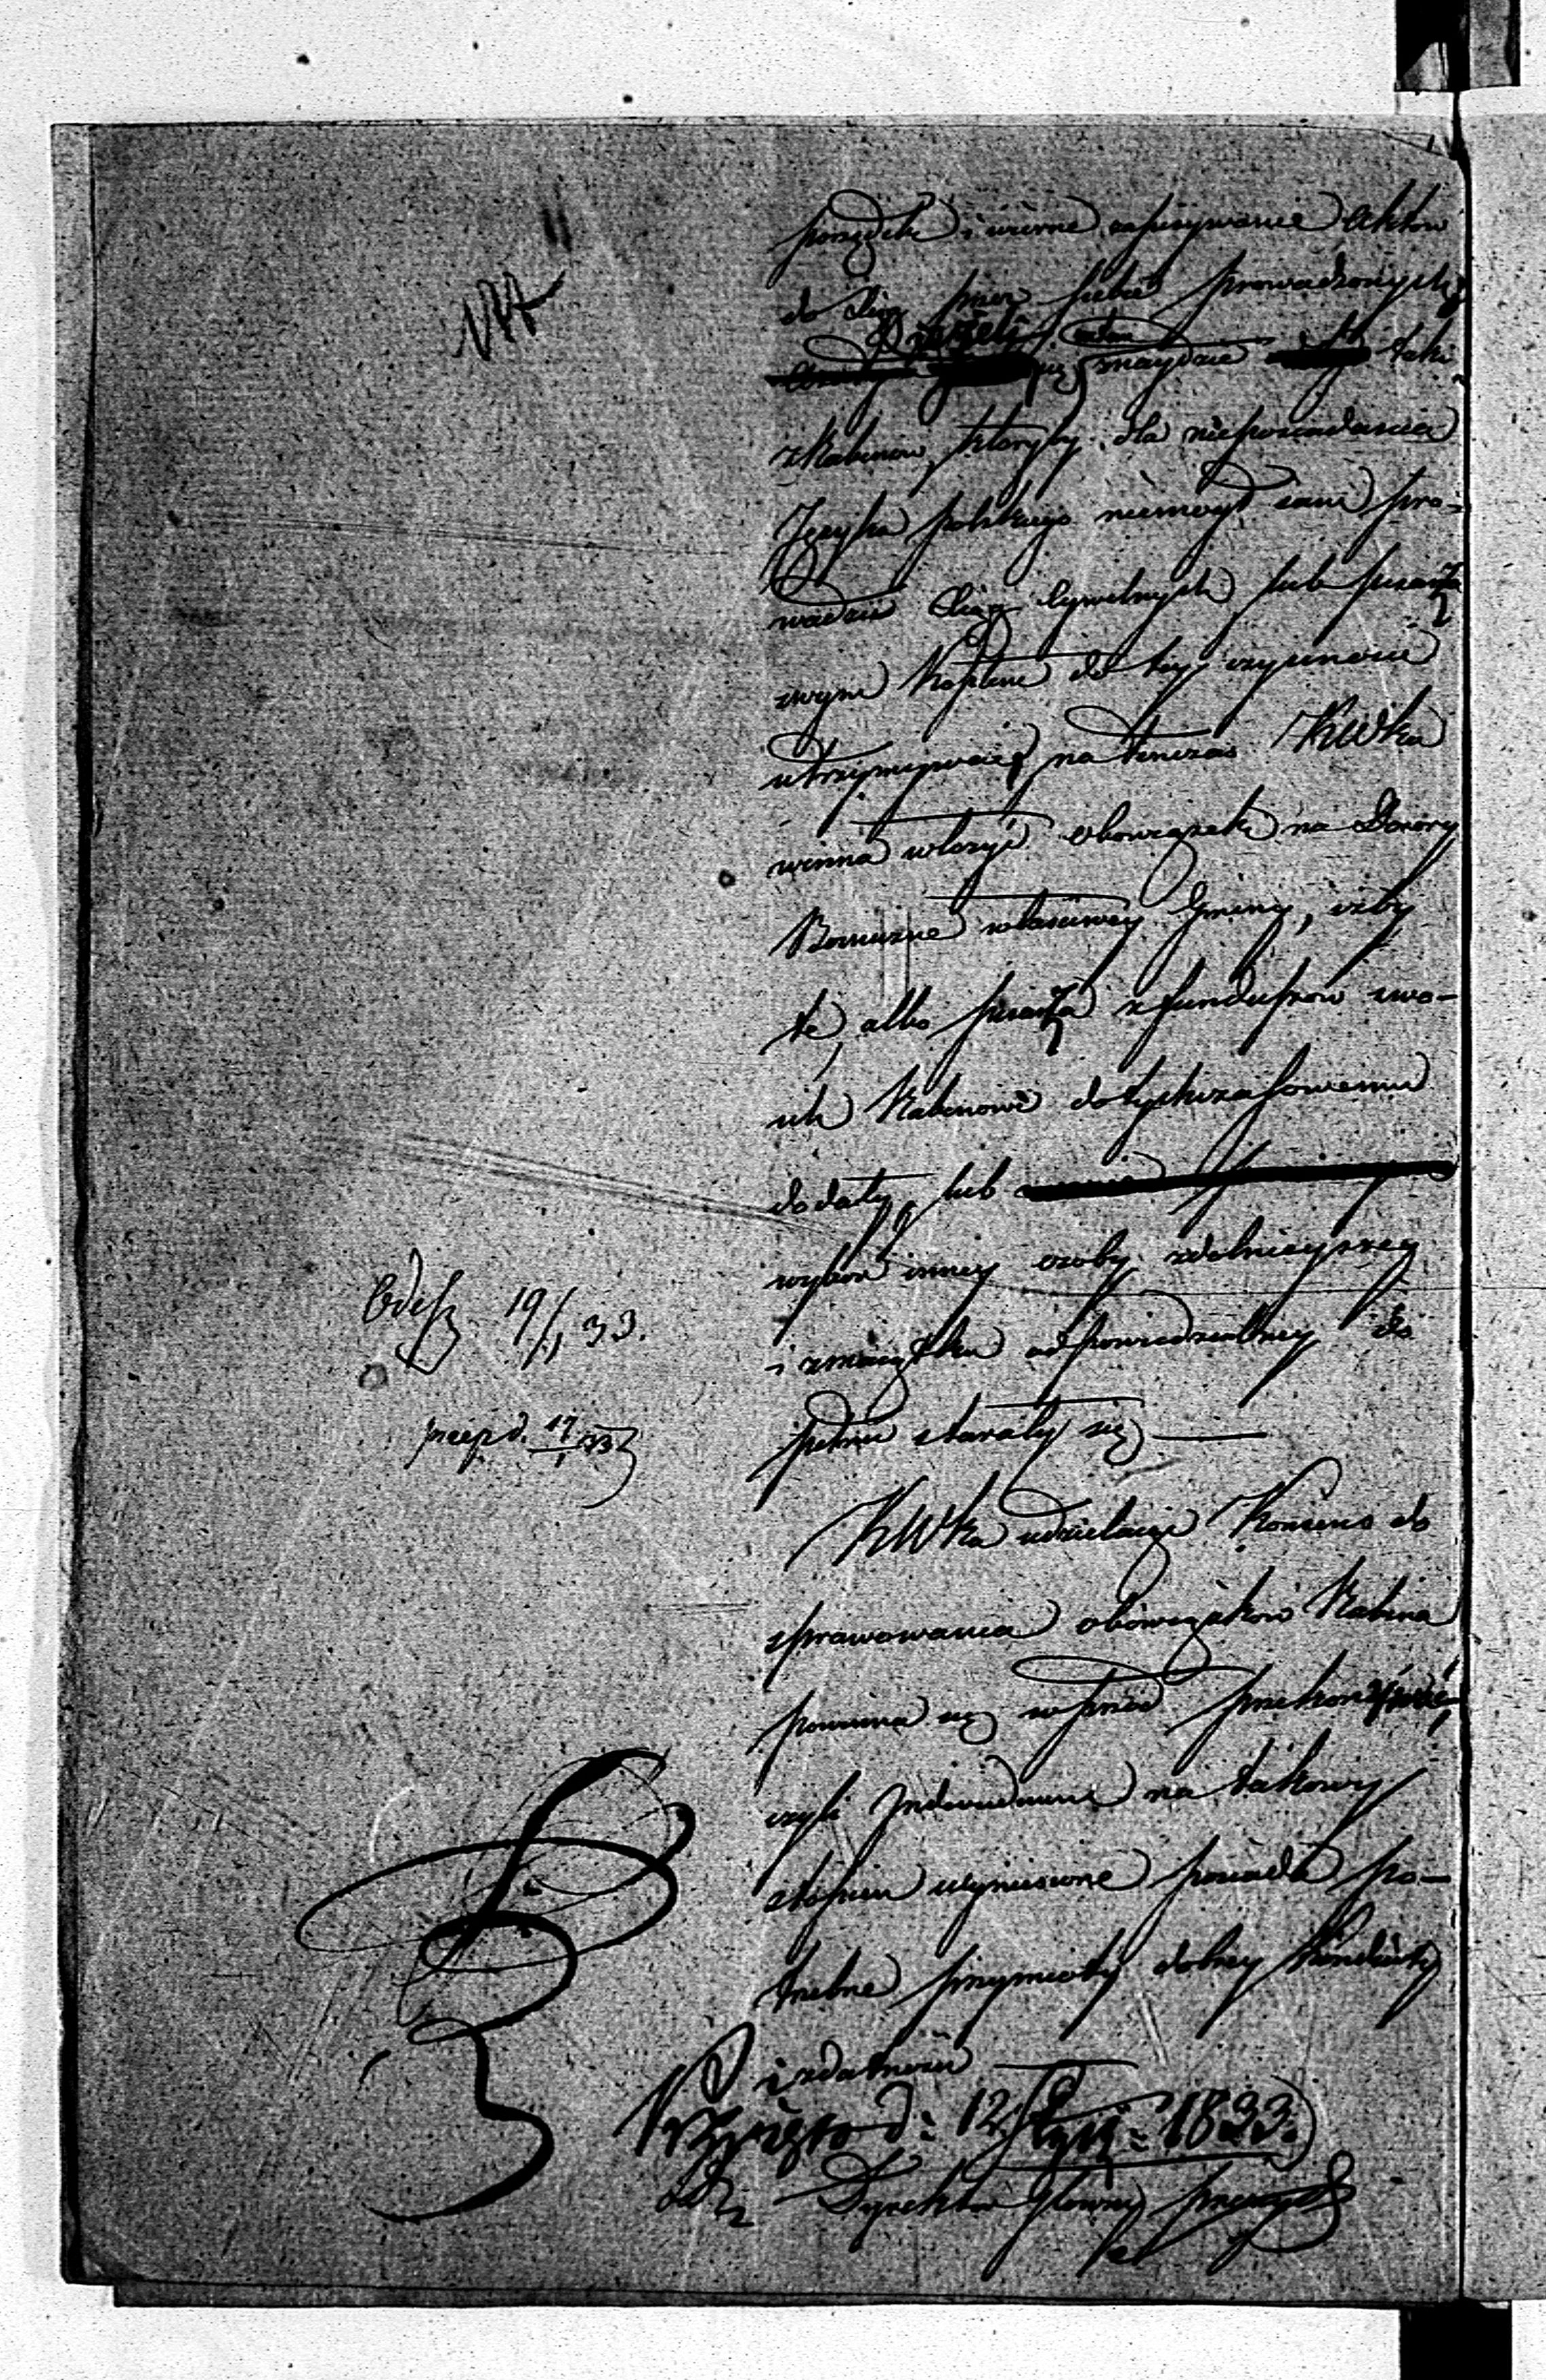 porządek i wierne zapisywanie Aktów
do Xiąg przez siebie prowadzonych,
Jeżeli
się znayduie taki
z Rabinów, któryby dla nieposiadania
Języka polskiego niemógł sam pro-
wadzić Xiąg Cywilnych lub pisarza
swym kosztem do tey czynności
utrzymywać, natenczas KWka
winna włożyć obowiązek na Dozory
Bożnicze właściwey Gminy, iżby
te, albo pisarza z funduszów swo-
ich Rabinowi dotychczasowemu
dodały, lub
wybór inney osoby zdolnieyszey
i z maiątku odpowiedzialney do
pełnić starały się
KWka udzielaiąc Konsens do
sprawowania obowiązków Rabina
powinna się wprzód przekonywać,
czyli Individuum na takowy
stopień wyniesione posiada po-
trzebne przymioty dobrey konduity
i zdatności
177
Odesz 19/1 33.
przep d. 17/1 33
d: 12 Stycz: 1833.
Dyrektor Główny Prezyd